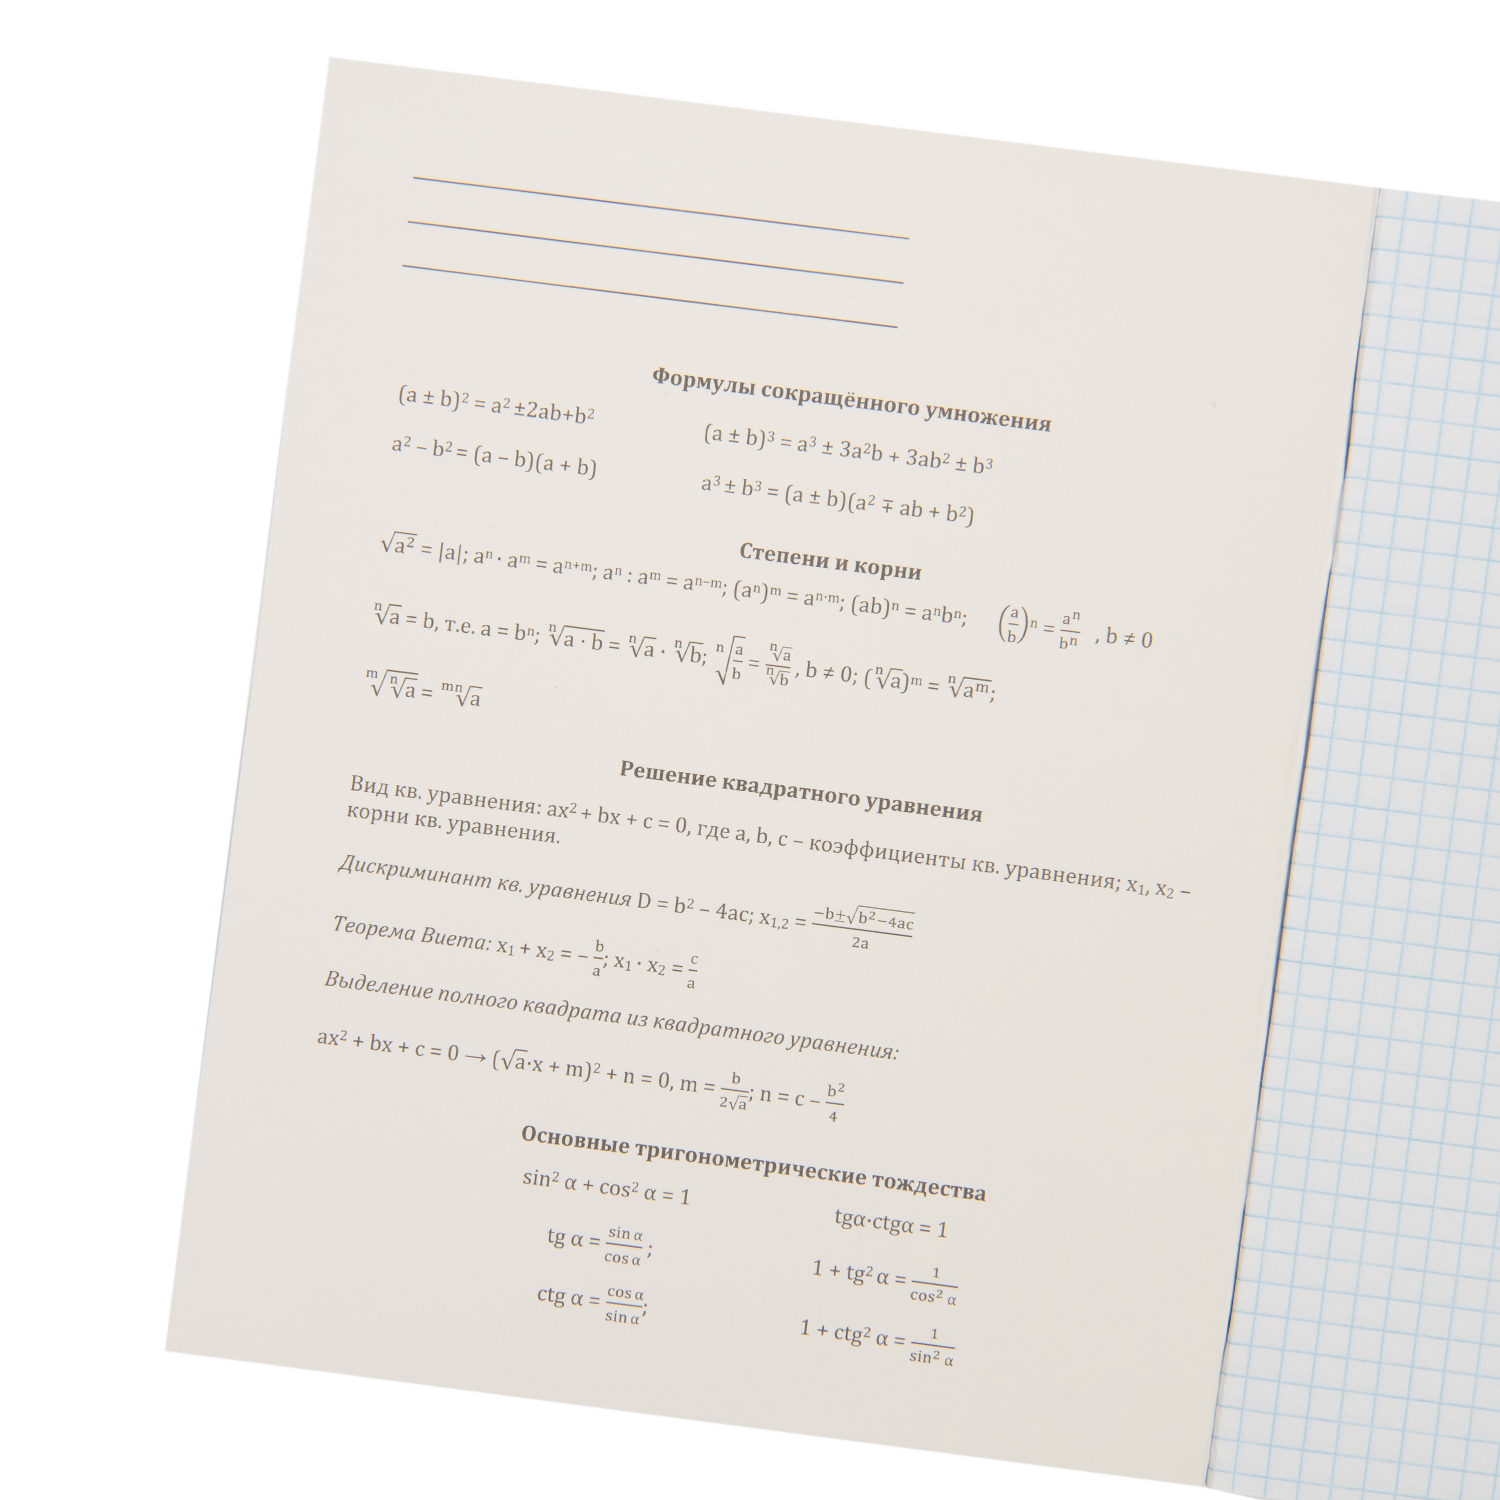 Формулы сокращённого умножения
(a ± b)² = a² ±2ab+b²
(a ± b)³ = a³ ± 3a²b + 3ab² ± b³
a² – b² = (a – b)(a + b)
a³ ± b³ = (a ± b)(a² ∓ ab + b²)
Степени и корни
√a² = |a|; aⁿ · aᵐ = aⁿ⁺ᵐ; aⁿ : aᵐ = aⁿ⁻ᵐ; (aⁿ)ᵐ = aⁿ·ᵐ; (ab)ⁿ = aⁿbⁿ; (a/b)ⁿ = aⁿ/bⁿ , b ≠ 0
ⁿ√a = b, т.е. a = bⁿ; ⁿ√(a · b) = ⁿ√a · ⁿ√b; ⁿ√(a/b) = ⁿ√a/ⁿ√b , b ≠ 0; (ⁿ√a)ᵐ = ⁿ√aᵐ;
ᵐ√(ⁿ√a) = ᵐⁿ√a
Решение квадратного уравнения
Вид кв. уравнения: ax² + bx + c = 0, где a, b, c – коэффициенты кв. уравнения; x₁, x₂ –
корни кв. уравнения.
Дискриминант кв. уравнения D = b² – 4ac; x₁,₂ = (−b±√(b²−4ac))/2a
Теорема Виета: x₁ + x₂ = – b/a; x₁ · x₂ = c/a
Выделение полного квадрата из квадратного уравнения:
ax² + bx + c = 0 → (√a·x + m)² + n = 0, m = b/(2√a); n = c – b²/4
Основные тригонометрические тождества
sin² α + cos² α = 1
tgα·ctgα = 1
tg α = sin α/cos α ;
1 + tg² α = 1/cos² α
ctg α = cos α/sin α;
1 + ctg² α = 1/sin² α